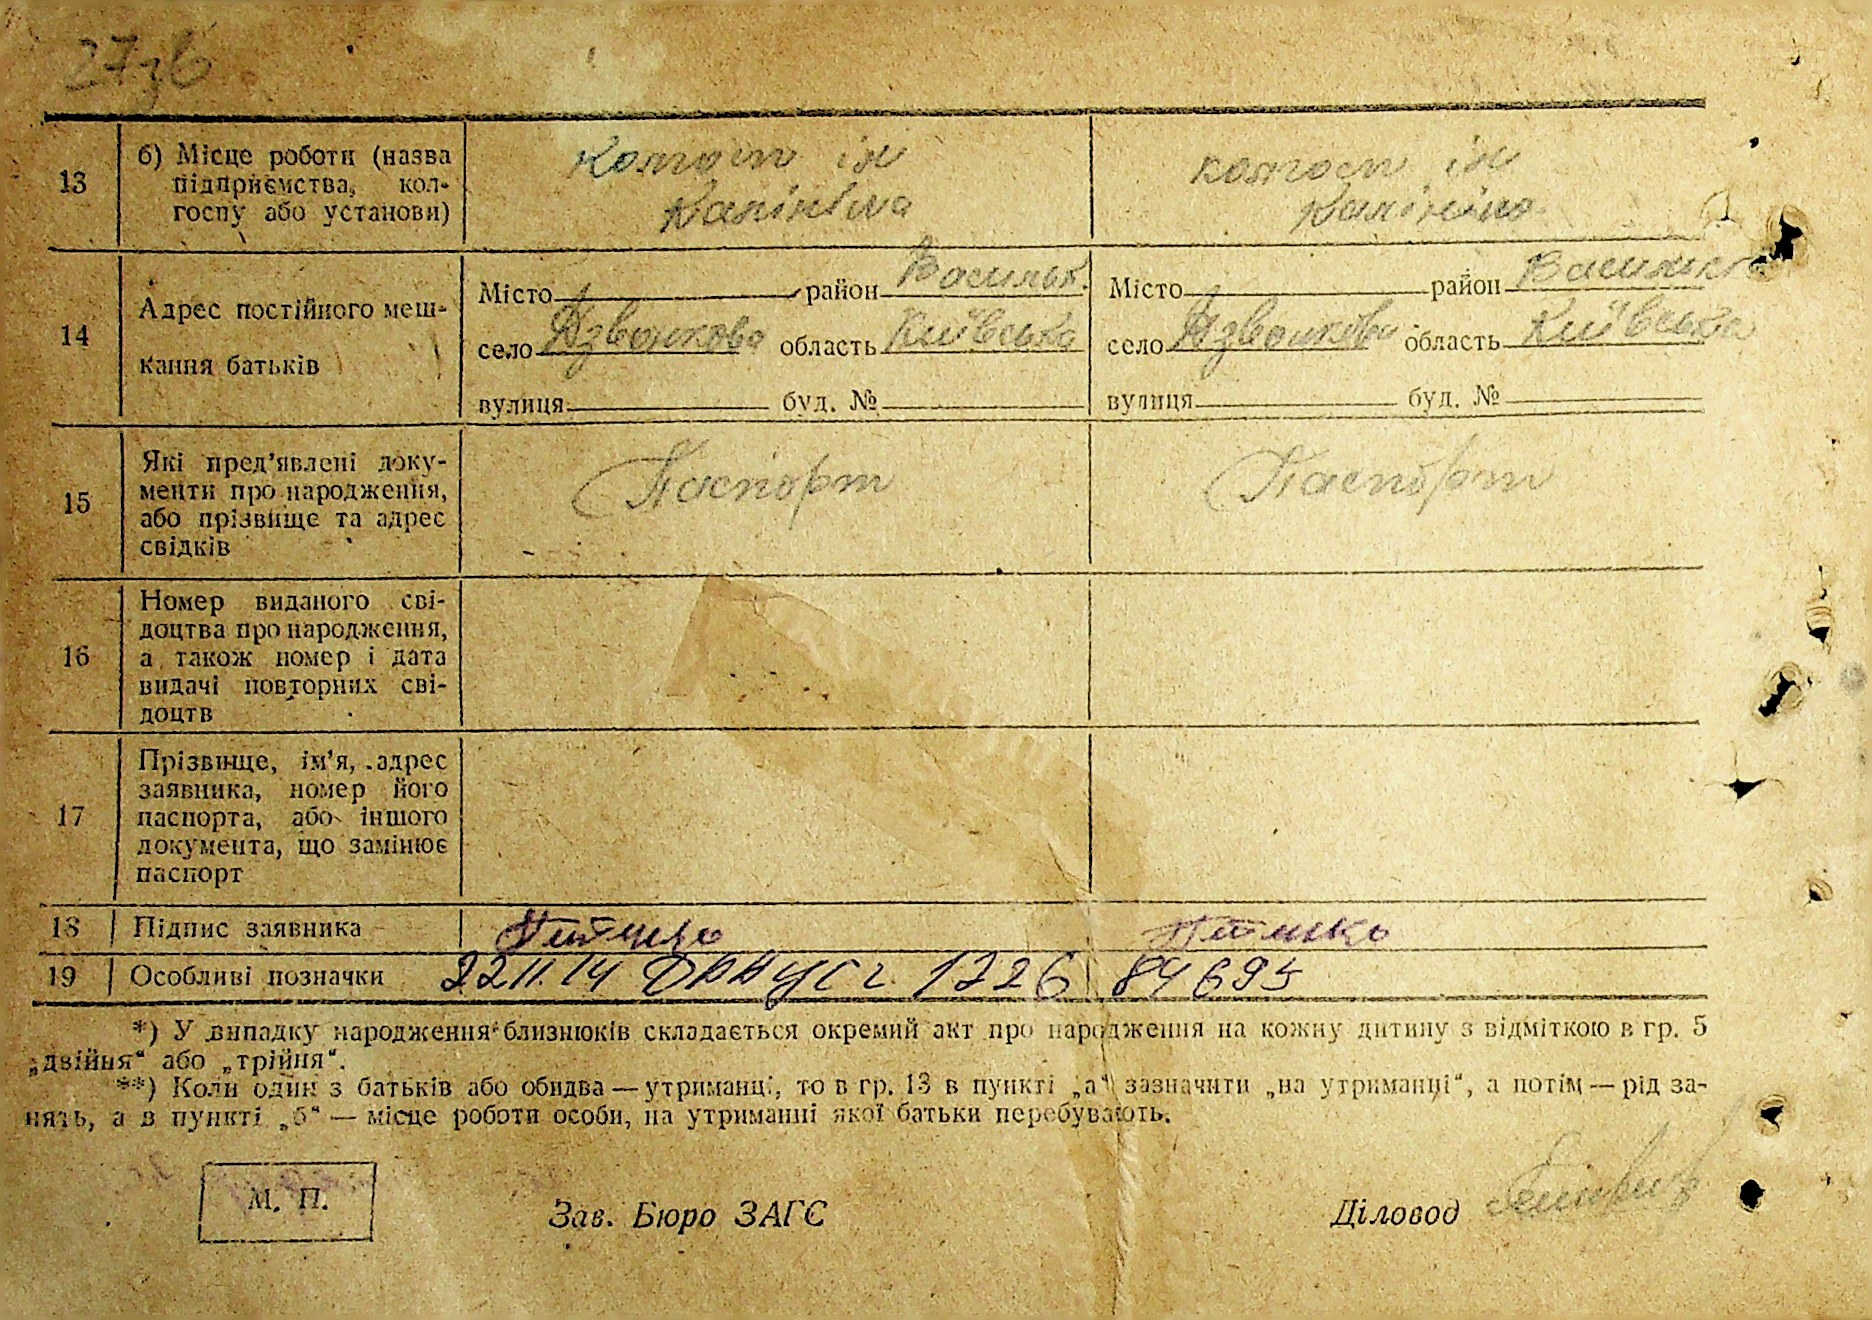 27зв
13
б) Місце роботи (назва
підприємства, кол-
госпу або установи)
колгосп ім
Калініна
колгосп ім
Калініна
14
Адрес постійного меш-
кання батьків
Місто район Васильк.
село Дзвонкова область Київська
вулиця буд. №
Місто район Васильк
село Дзвонкова область Київська
вулиця буд. №
15
Які пред'явлені доку-
менти про народження,
або прізвище та адрес
свідків
Паспорт
Паспорт
16
Номер виданого сві-
доцтва про народження,
а також номер і дата
видачі повторних сві-
доцтв
17
Прізвище, ім'я, адрес
заявника, номер його
паспорта, або іншого
документа, що замінює
паспорт
18 Підпис заявника
19 Особливі позначки 1226 84693
*) У випадку народження близнюків складається окремий акт про народження на кожну дитину з відміткою в гр. 5
„двійня“ або „трійня“.
**) Коли один з батьків або обидва — утриманці, то в гр. 13 в пункті „а“ зазначити „на утриманці“, а потім — рід за-
нять, а в пункті „б“ — місце роботи особи, на утриманні якої батьки перебувають.
М. П.
Зав. Бюро ЗАГС
Діловод